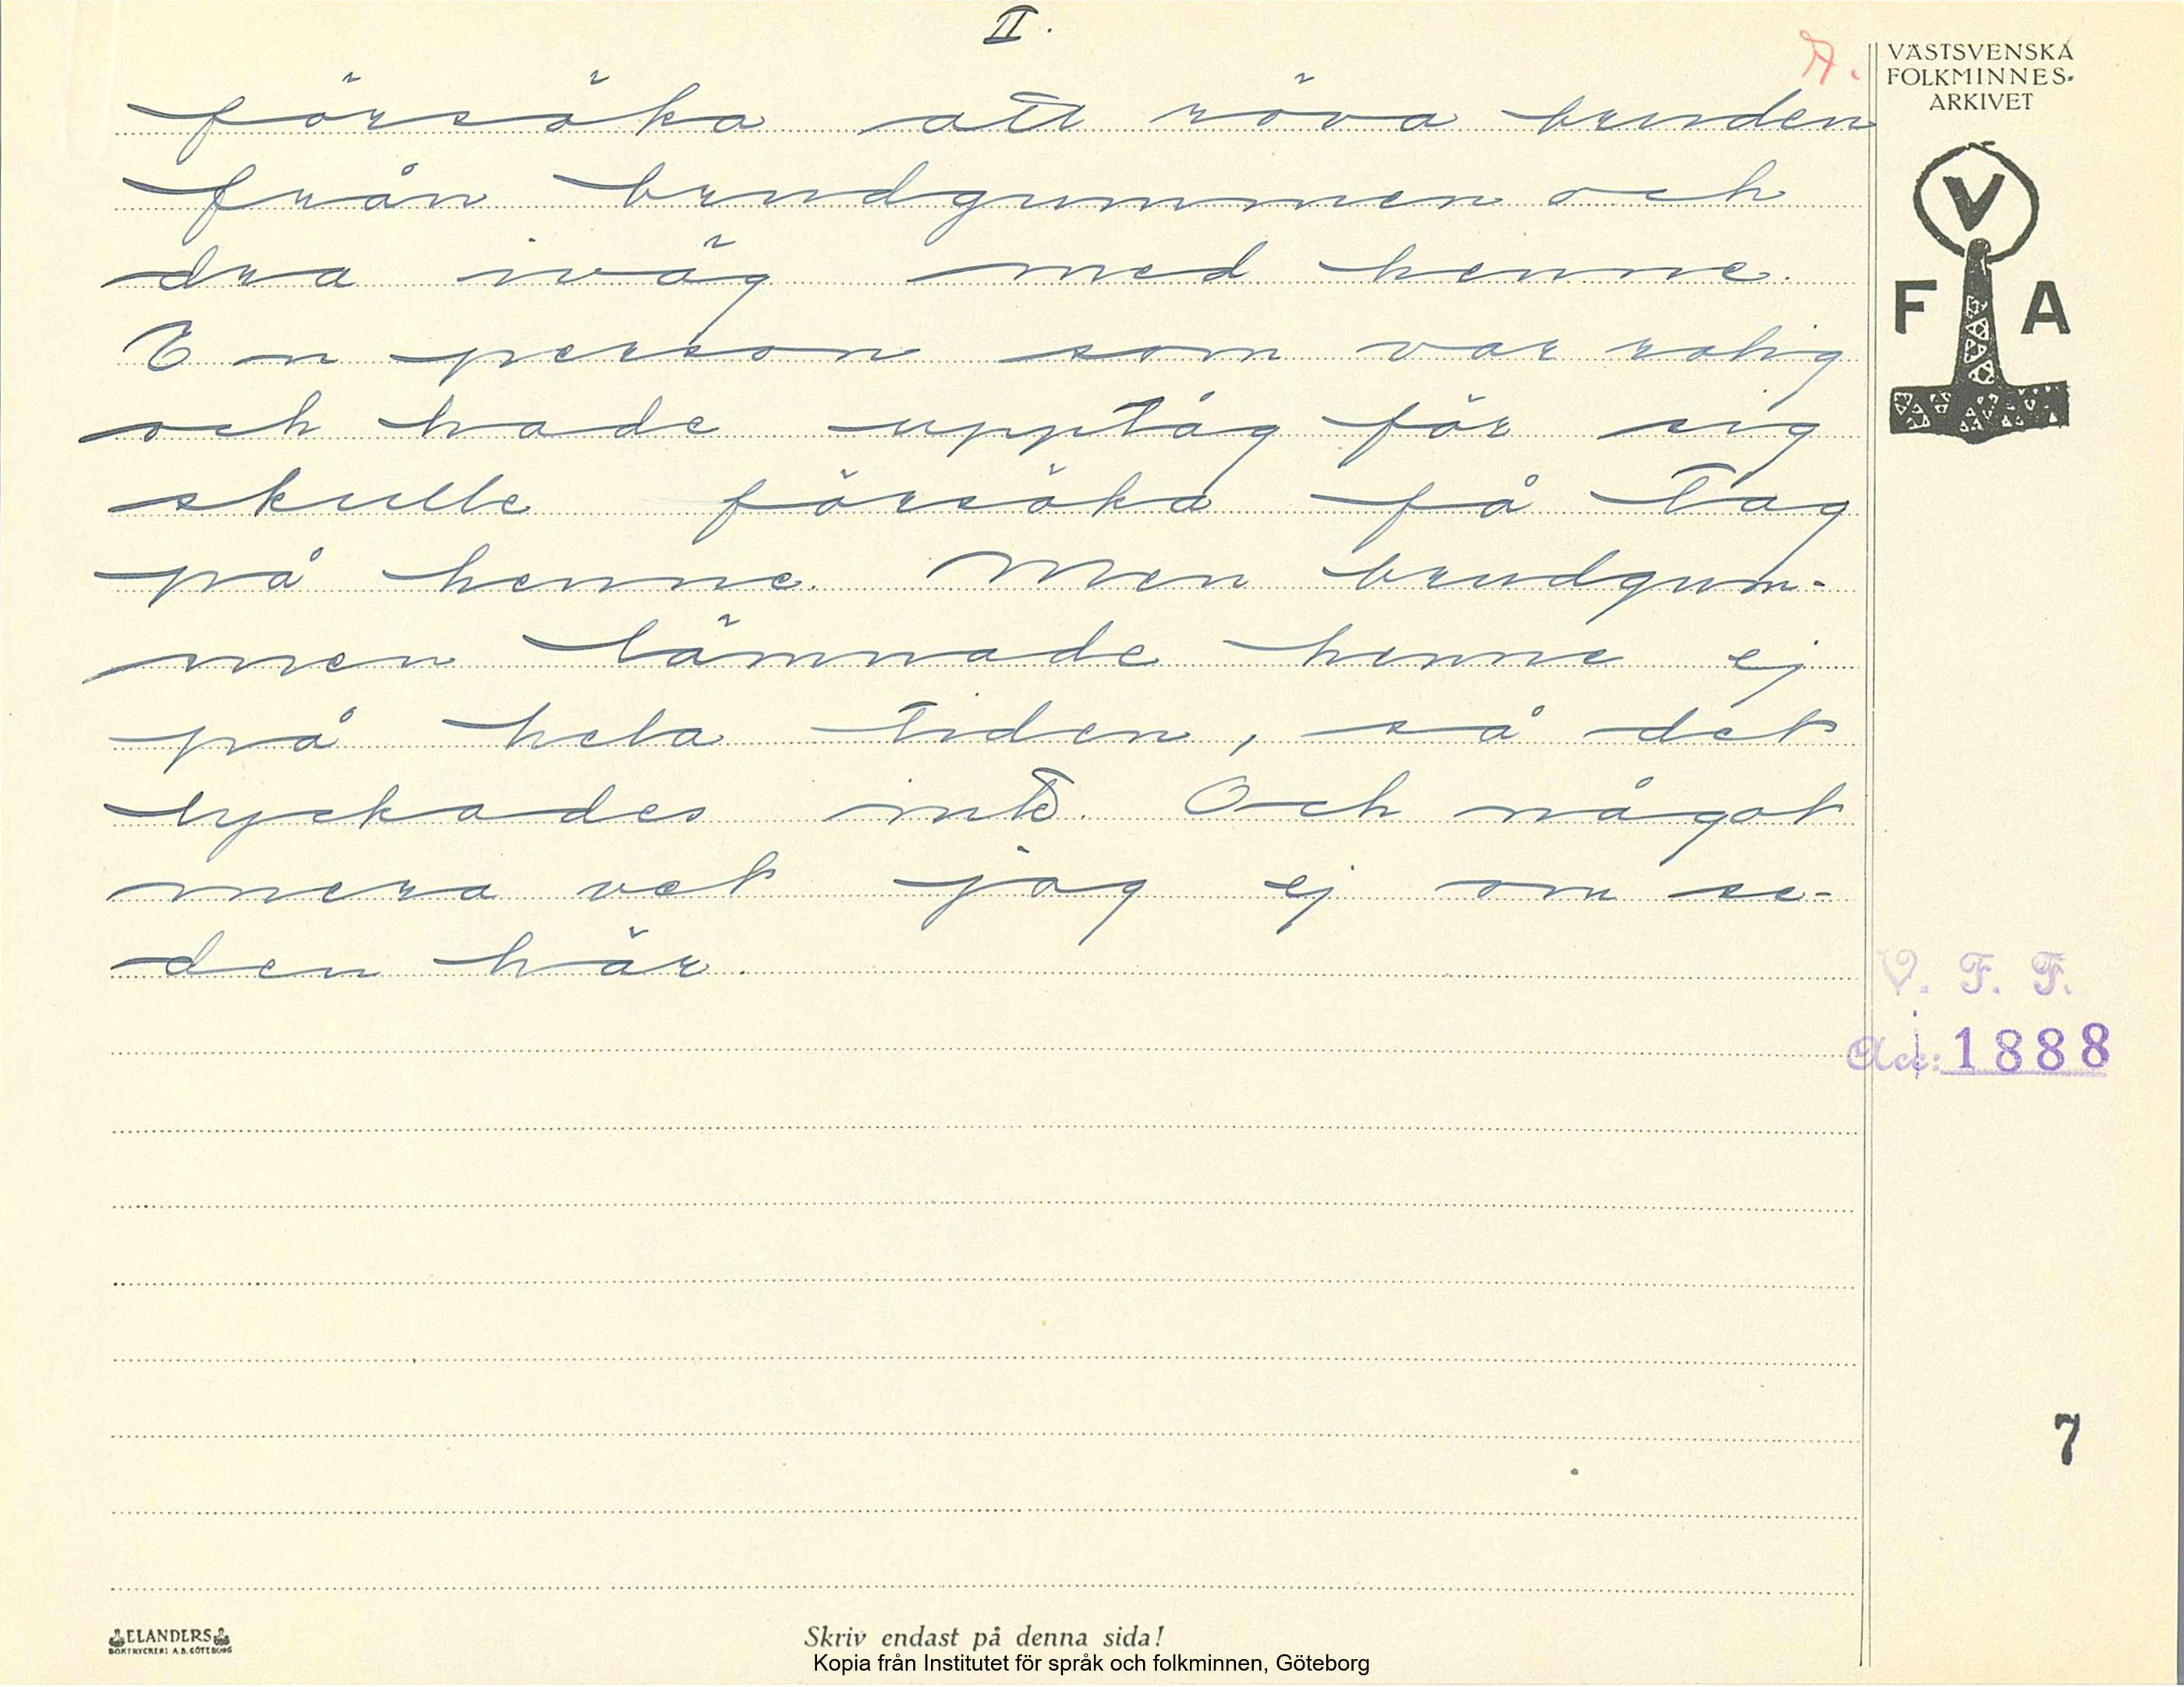 II.
A.
VÄSTSVENSKA
FOLKMINNES-
ARKIVET
V
F A
försöka att röva bruden
från brudgummen och
dra iväg med henne.
En person som var rolig
och hade upptåg för sig
skulle försöka få tag
på henne. Men brudgum-
men lämnade henne ej
på hela tiden, så det
lyckades inte. Och något
mera vet jag ej om se-
den här.
V. F. F.
Acc: 1888
7
ELANDERS
BOKTRYCKERI A.B. GÖTEBORG
Skriv endast på denna sida!
Kopia från Institutet för språk och folkminnen, Göteborg